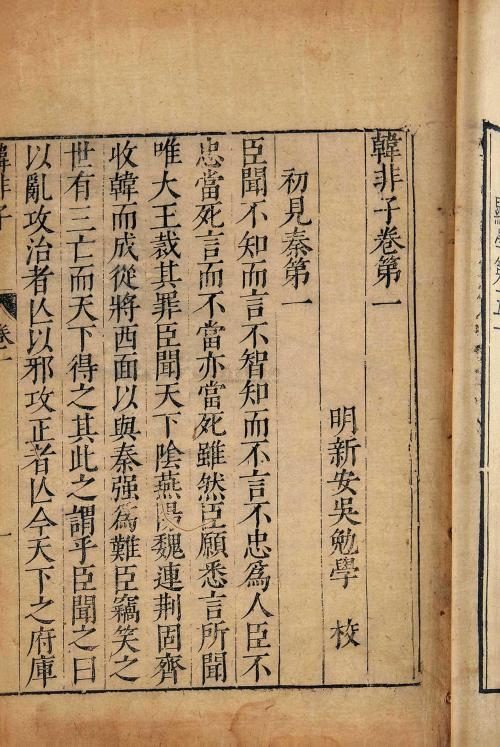 韓非子卷第一
明新安吳勉學 校
初見秦第一
臣聞不知而言不智知而不言不忠爲人臣不
忠當死言而不當亦當死雖然臣願悉言所聞
唯大王裁其罪臣聞天下陰燕陽魏連荆固齊
收韓而成從將西面以與秦强爲難臣竊笑之
世有三亡而天下得之其此之謂乎臣聞之曰
以亂攻治者亾以邪攻正者亾今天下之府庫
韓非子 卷一 一